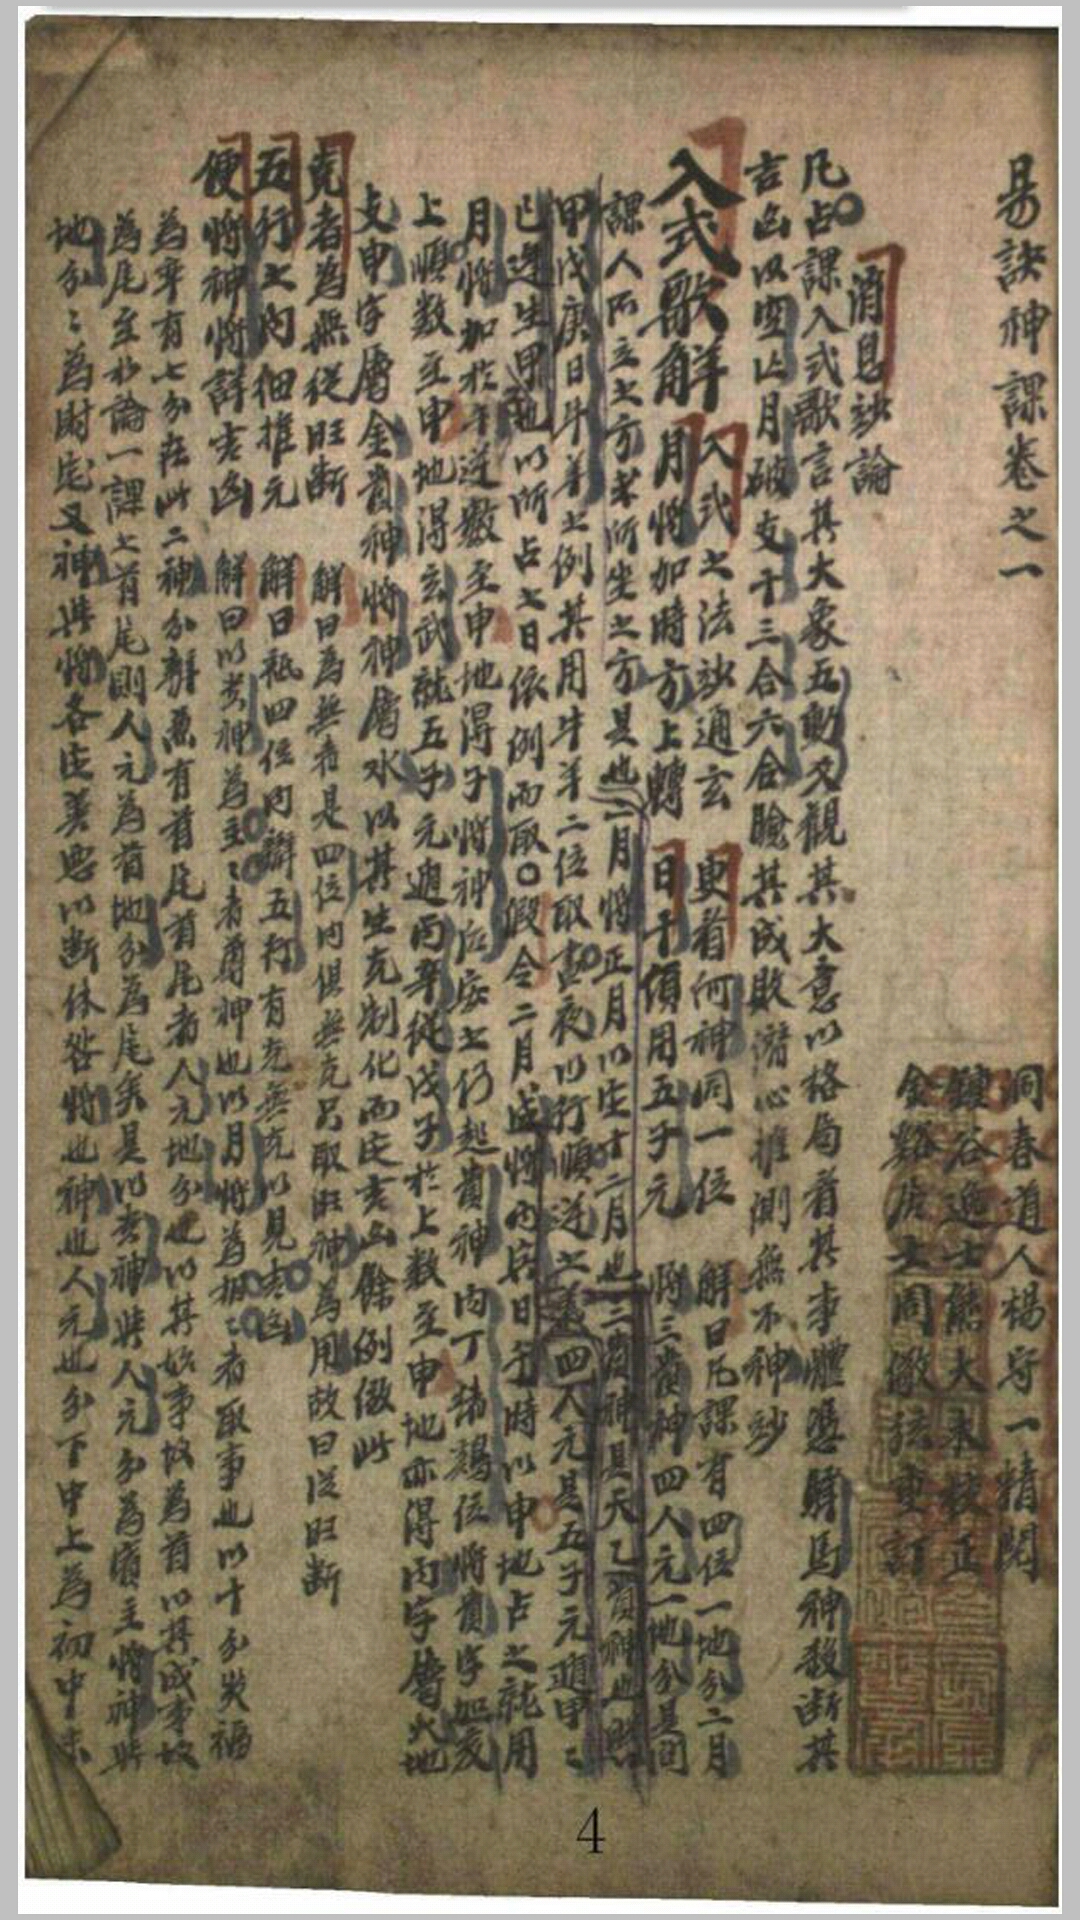 易訣神課卷之一
洞春道人楊守一精閱
鍾谷進士熊大木校正
金谿居士周儆弦重訂
消息妙論
凡占課入式歌言其大象五動爻觀其大意以格局看其事體憑驛馬神殺斷其
吉凶以空亡月破支干三合六合驗其成敗潛心推測無不神妙
入式歌解 入式之法妙通玄 更看何神同一位 解曰凡課有四位一地分二月
月將加時方上轉 日干傾用五子元 將三貴神四人元一地分是問
課人所立之方或所坐之方是也二月將正月以生十二月也三貴神是天乙貴神也照
甲戊庚日牛羊之例其用牛羊二位取晝夜以行順逆之義四人元是五子元遁甲之
己逐生甲也以所占之日依例而取○假令二月成將丙辰日子時以申地占之就用
月將加於子逆數至申地得子將神后定之仍起貴神丙丁豬鷄位將貴字加亥
上順數至申地得玄武就五子元遁丙辛從戊子於上數至申地亦得丙字屬火地
支申字屬金貴神將神屬水以其生克制化而定吉凶餘例倣此
克者為無從旺斷 解曰為無者是四位內俱無克只取旺神為用故曰從旺斷
五行之內細推元 解曰祗四位內辯五行有克無克以見吉凶
便將神將詳吉凶 解曰以貴神為主主者尊神也以月將為相相者取事也以十分災福
為率有七分在此二神分辨焉有首尾首尾者人元地分也以其始事故為首以其成事故
為尾至於論一課之首尾則人元為首地分為尾矣是以貴神與人元分為賓主將神與
地分分為財宅又神與將各定善惡以斷休咎將也神也人元也分下中上為初中末
4